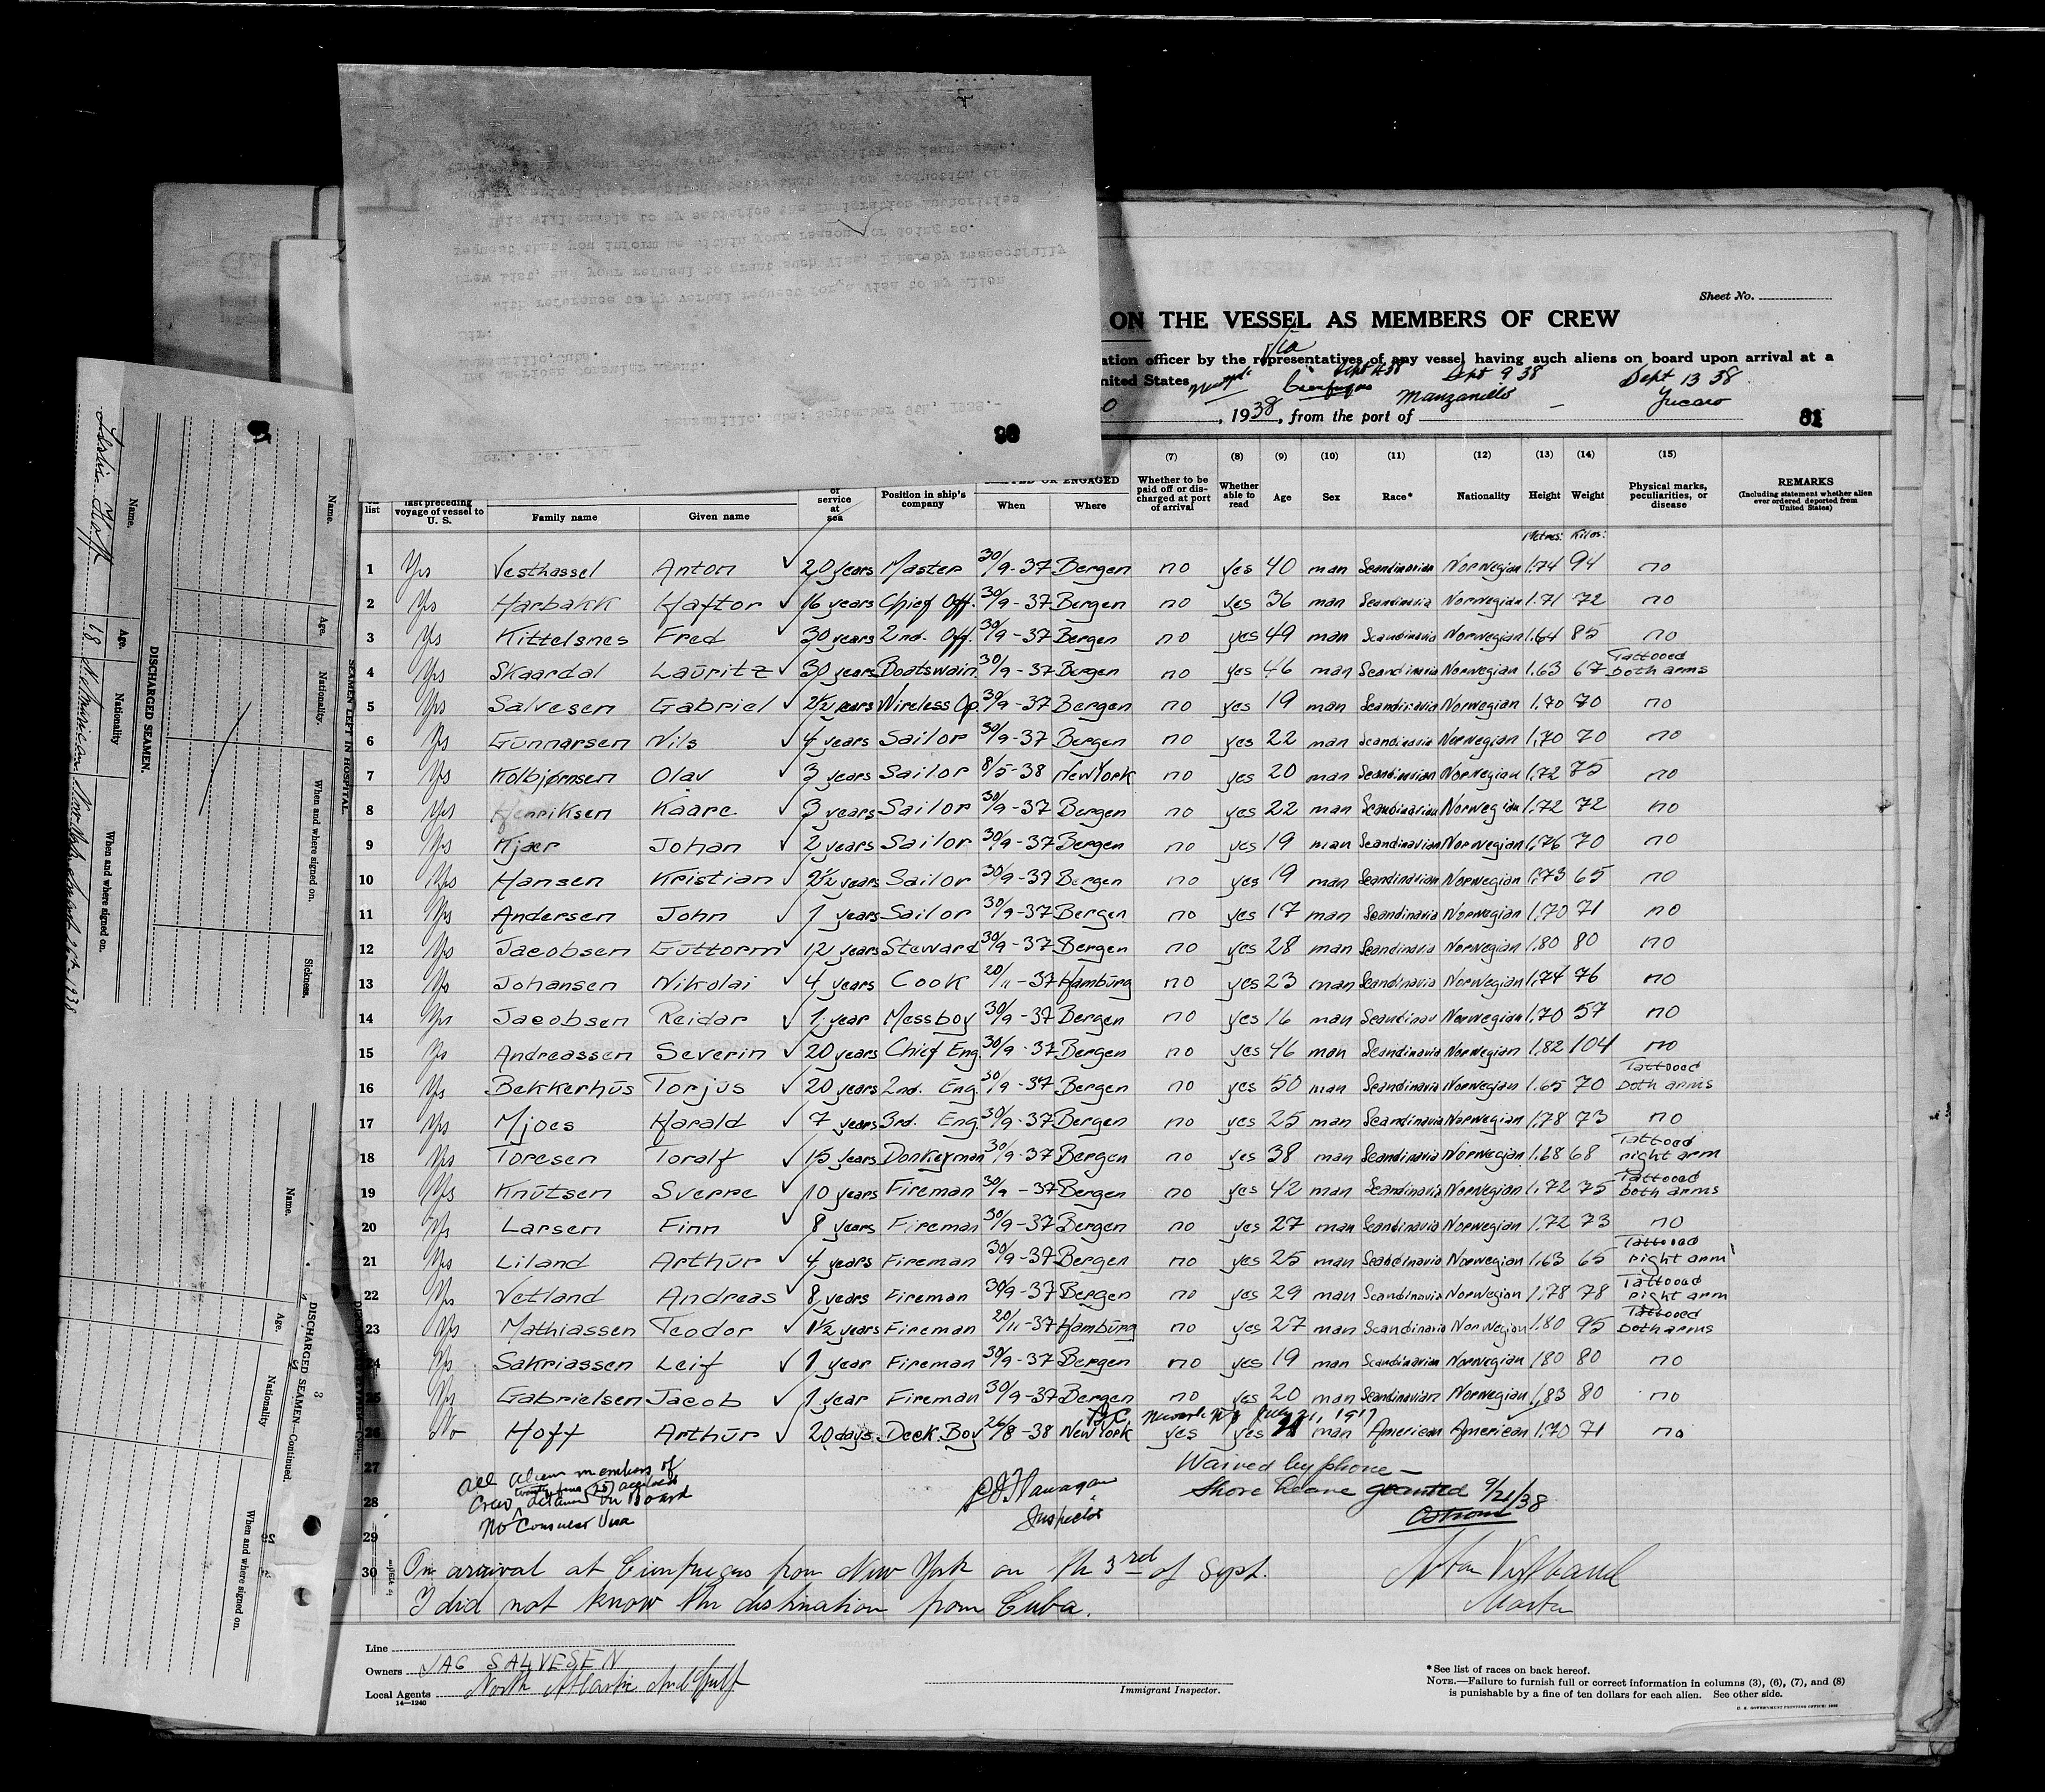 Sheet No.
ON THE VESSEL AS MEMBERS OF CREW
Via
ation officer by the representatives of any vessel having such aliens on board upon arrival at a
nited States
Sept 9 38 Sept 13 38
, 1938, from the port of Manzanillo – Jucaro
81
98
list
last preceding voyage of vessel to U. S.
Family name
Given name
of service at sea
Position in ship's company
OR ENGAGED
When
Where
(7) Whether to be paid off or discharged at port of arrival
(8) Whether able to read
(9) Age
(10) Sex
(11) Race*
(12) Nationality
(13) Height
(14) Weight
(15) Physical marks, peculiarities, or disease
REMARKS
(Including statement whether alien ever ordered deported from United States)
Metres: Kilos:
1 Yes Vesthassel Anton ✓ 20 years Master 30/9-37 Bergen no yes 40 man Scandinavian Norwegian 1.74 94 no
2 Yes Harbakk Haftor ✓ 16 years Chief Off. 30/9-37 Bergen no yes 36 man Scandinavia Norwegian 1.71 72 no
3 Yes Kittelsnes Fred ✓ 30 years 2nd. Off. 30/9-37 Bergen no yes 49 man Scandinavia Norwegian 1.64 85 no
4 Yes Skaardal Lauritz ✓ 30 years Boatswain 30/9-37 Bergen no yes 46 man Scandinavia Norwegian 1.63 67 Tattooed both arms
5 Yes Salvesen Gabriel ✓ 2½ years Wireless Op. 30/9-37 Bergen no yes 19 man Scandinavia Norwegian 1.70 70 no
6 Yes Gunnarsen Nils ✓ 4 years Sailor 30/9-37 Bergen no yes 22 man Scandinavia Norwegian 1.70 70 no
7 Yes Kolbjørnsen Olav ✓ 3 years Sailor 8/5-38 New York no yes 20 man Scandinavian Norwegian 1.72 75 no
8 Yes Henriksen Kaare ✓ 3 years Sailor 30/9-37 Bergen no yes 22 man Scandinavian Norwegian 1.72 72 no
9 Yes Kjær Johan ✓ 2 years Sailor 30/9-37 Bergen no yes 19 man Scandinavian Norwegian 1.76 70 no
10 Yes Hansen Kristian ✓ 2½ years Sailor 30/9-37 Bergen no yes 19 man Scandinavian Norwegian 1.73 65 no
11 Yes Andersen John ✓ 1 years Sailor 30/9-37 Bergen no yes 17 man Scandinavia Norwegian 1.70 71 no
12 Yes Jacobsen Guttorm ✓ 12 years Steward 30/9-37 Bergen no yes 28 man Scandinavia Norwegian 1.80 80 no
13 Yes Johansen Nikolai ✓ 4 years Cook 20/11-37 Hamburg no yes 23 man Scandinavia Norwegian 1.74 76 no
14 Yes Jacobsen Reidar ✓ 1 year Messboy 30/9-37 Bergen no yes 16 man Scandinav Norwegian 1.70 57 no
15 Yes Andreassen Severin ✓ 20 years Chief Eng. 30/9-37 Bergen no yes 46 man Scandinavia Norwegian 1.82 104 no
16 Yes Bekkerhus Torjus ✓ 20 years 2nd. Eng. 30/9-37 Bergen no yes 50 man Scandinavia Norwegian 1.65 70 Tattooed both arms
17 Yes Mjoes Harald ✓ 7 years 3rd. Eng. 30/9-37 Bergen no yes 25 man Scandinavia Norwegian 1.78 73 no
18 Yes Toresen Toralf ✓ 15 years Donkeyman 30/9-37 Bergen no yes 38 man Scandinavia Norwegian 1.68 68 Tattooed right arm
19 Yes Knutsen Sverre ✓ 10 years Fireman 30/9-37 Bergen no yes 42 man Scandinavia Norwegian 1.72 75 Tattooed both arms
20 Yes Larsen Finn ✓ 8 years Fireman 30/9-37 Bergen no yes 27 man Scandinavia Norwegian 1.72 73 no
21 Yes Liland Arthur ✓ 4 years Fireman 30/9-37 Bergen no yes 25 man Scandinavia Norwegian 1.63 65 Tattooed right arm
22 Yes Vetland Andreas ✓ 8 years Fireman 30/9-37 Bergen no yes 29 man Scandinavia Norwegian 1.78 78 Tattooed right arm
23 Yes Mathiassen Teodor ✓ 1½ years Fireman 20/11-37 Hamburg no yes 27 man Scandinavia Norwegian 1.80 95 Tattooed both arms
24 Yes Sakriassen Leif ✓ 1 year Fireman 30/9-37 Bergen no yes 19 man Scandinavian Norwegian 1.80 80 no
25 Yes Gabrielsen Jacob ✓ 1 year Fireman 30/9-37 Bergen no yes 20 man Scandinavian Norwegian 1.83 80 no
B.C. Newark NJ July 21, 1917
26 No Hoff Arthur ✓ 20 days Deck Boy 26/8-38 New York yes yes 21 man American American 1.70 71 no
27 Waived by phone –
28 Shore Leave granted 9/21/38
29
All Alien members of
Crew twenty five (25) detained on Board
No Consular Visa
Inspector
30 On arrival at Cienfuegos from New York on th 3rd of Sept.
I did not know the distination from Cuba.
Master
Line
Owners JAG SALVESEN
Local Agents North Atlantic and Gulf
14—1240
Immigrant Inspector.
*See list of races on back hereof.
NOTE.—Failure to furnish full or correct information in columns (3), (6), (7), and (8)
is punishable by a fine of ten dollars for each alien. See other side.
Manzanillo, Cuba; September 9th, 1938.-
The American Consular Agent.
Manzanillo, Cuba.
Sir:
With reference to my verbal request for a Visa to my Alien
Crew List, and your refusal to grant such Visa, I hereby respectfully
request that you inform me within your reason for doing so.
This will enable to my satisfice the Immigration Authorities
SEAMEN LEFT IN HOSPITAL.
Name.
Age.
Nationality.
When and where signed on.
Sickness.
DISCHARGED SEAMEN.
Name.
Age.
Nationality
When and where signed on.
Hoff 18 American New York
DISCHARGED SEAMEN—Continued.
Name.
Age.
Nationality
When and where signed on.